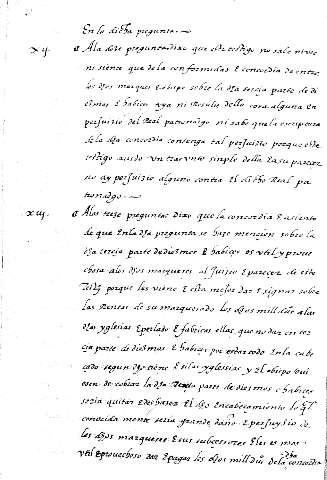 En la dicha pregunta —
xij. A la doze preguntas dixo que este testigo no sabe ni vee
ni siente que de la conformidad E concordia de entre
los dhos marques E obispo sobre la dha tercia parte de di
ezmos E habices aya ni Resulte dello cosa alguna En
perjuizio del Real patronadgo ni sabe que la escriptura
de la dha concordia contenga tal perjuizio porque este
testigo a visto Un traslado simple della E a su parecer
no ay perjuizio alguno contra El dicho Real pa
tronadgo —
xiij. A las treze preguntas dixo que la concordia E asiento
de que En la dha pregunta se haze mencion sobre la
dha tercia parte de diezmos E habices es util y prove
chosa a los dhos marqueses al Juizio E parecer de este
testigo porque les viene E esta mejor dar E signar sobre
las Rentas de su marquesado los dhos mill duos a las
dhas yglesias E perlado E fabricas ellas que no dar en ter
cia parte de diezmos E habices por estar todo En la cabe
cado segun dho tiene E si las yglesias y El obispo hui
esen de cobrar la dha tercia parte de diezmos E habices
seria quitar E deshazer El dho Encabezamiento lo ql
conocida mente seria grande daño E perjuyzio de
los dhos marqueses E sus subcesores E les es mas
util E provechoso dar E pagar los dhos mill duos de la dha concordia